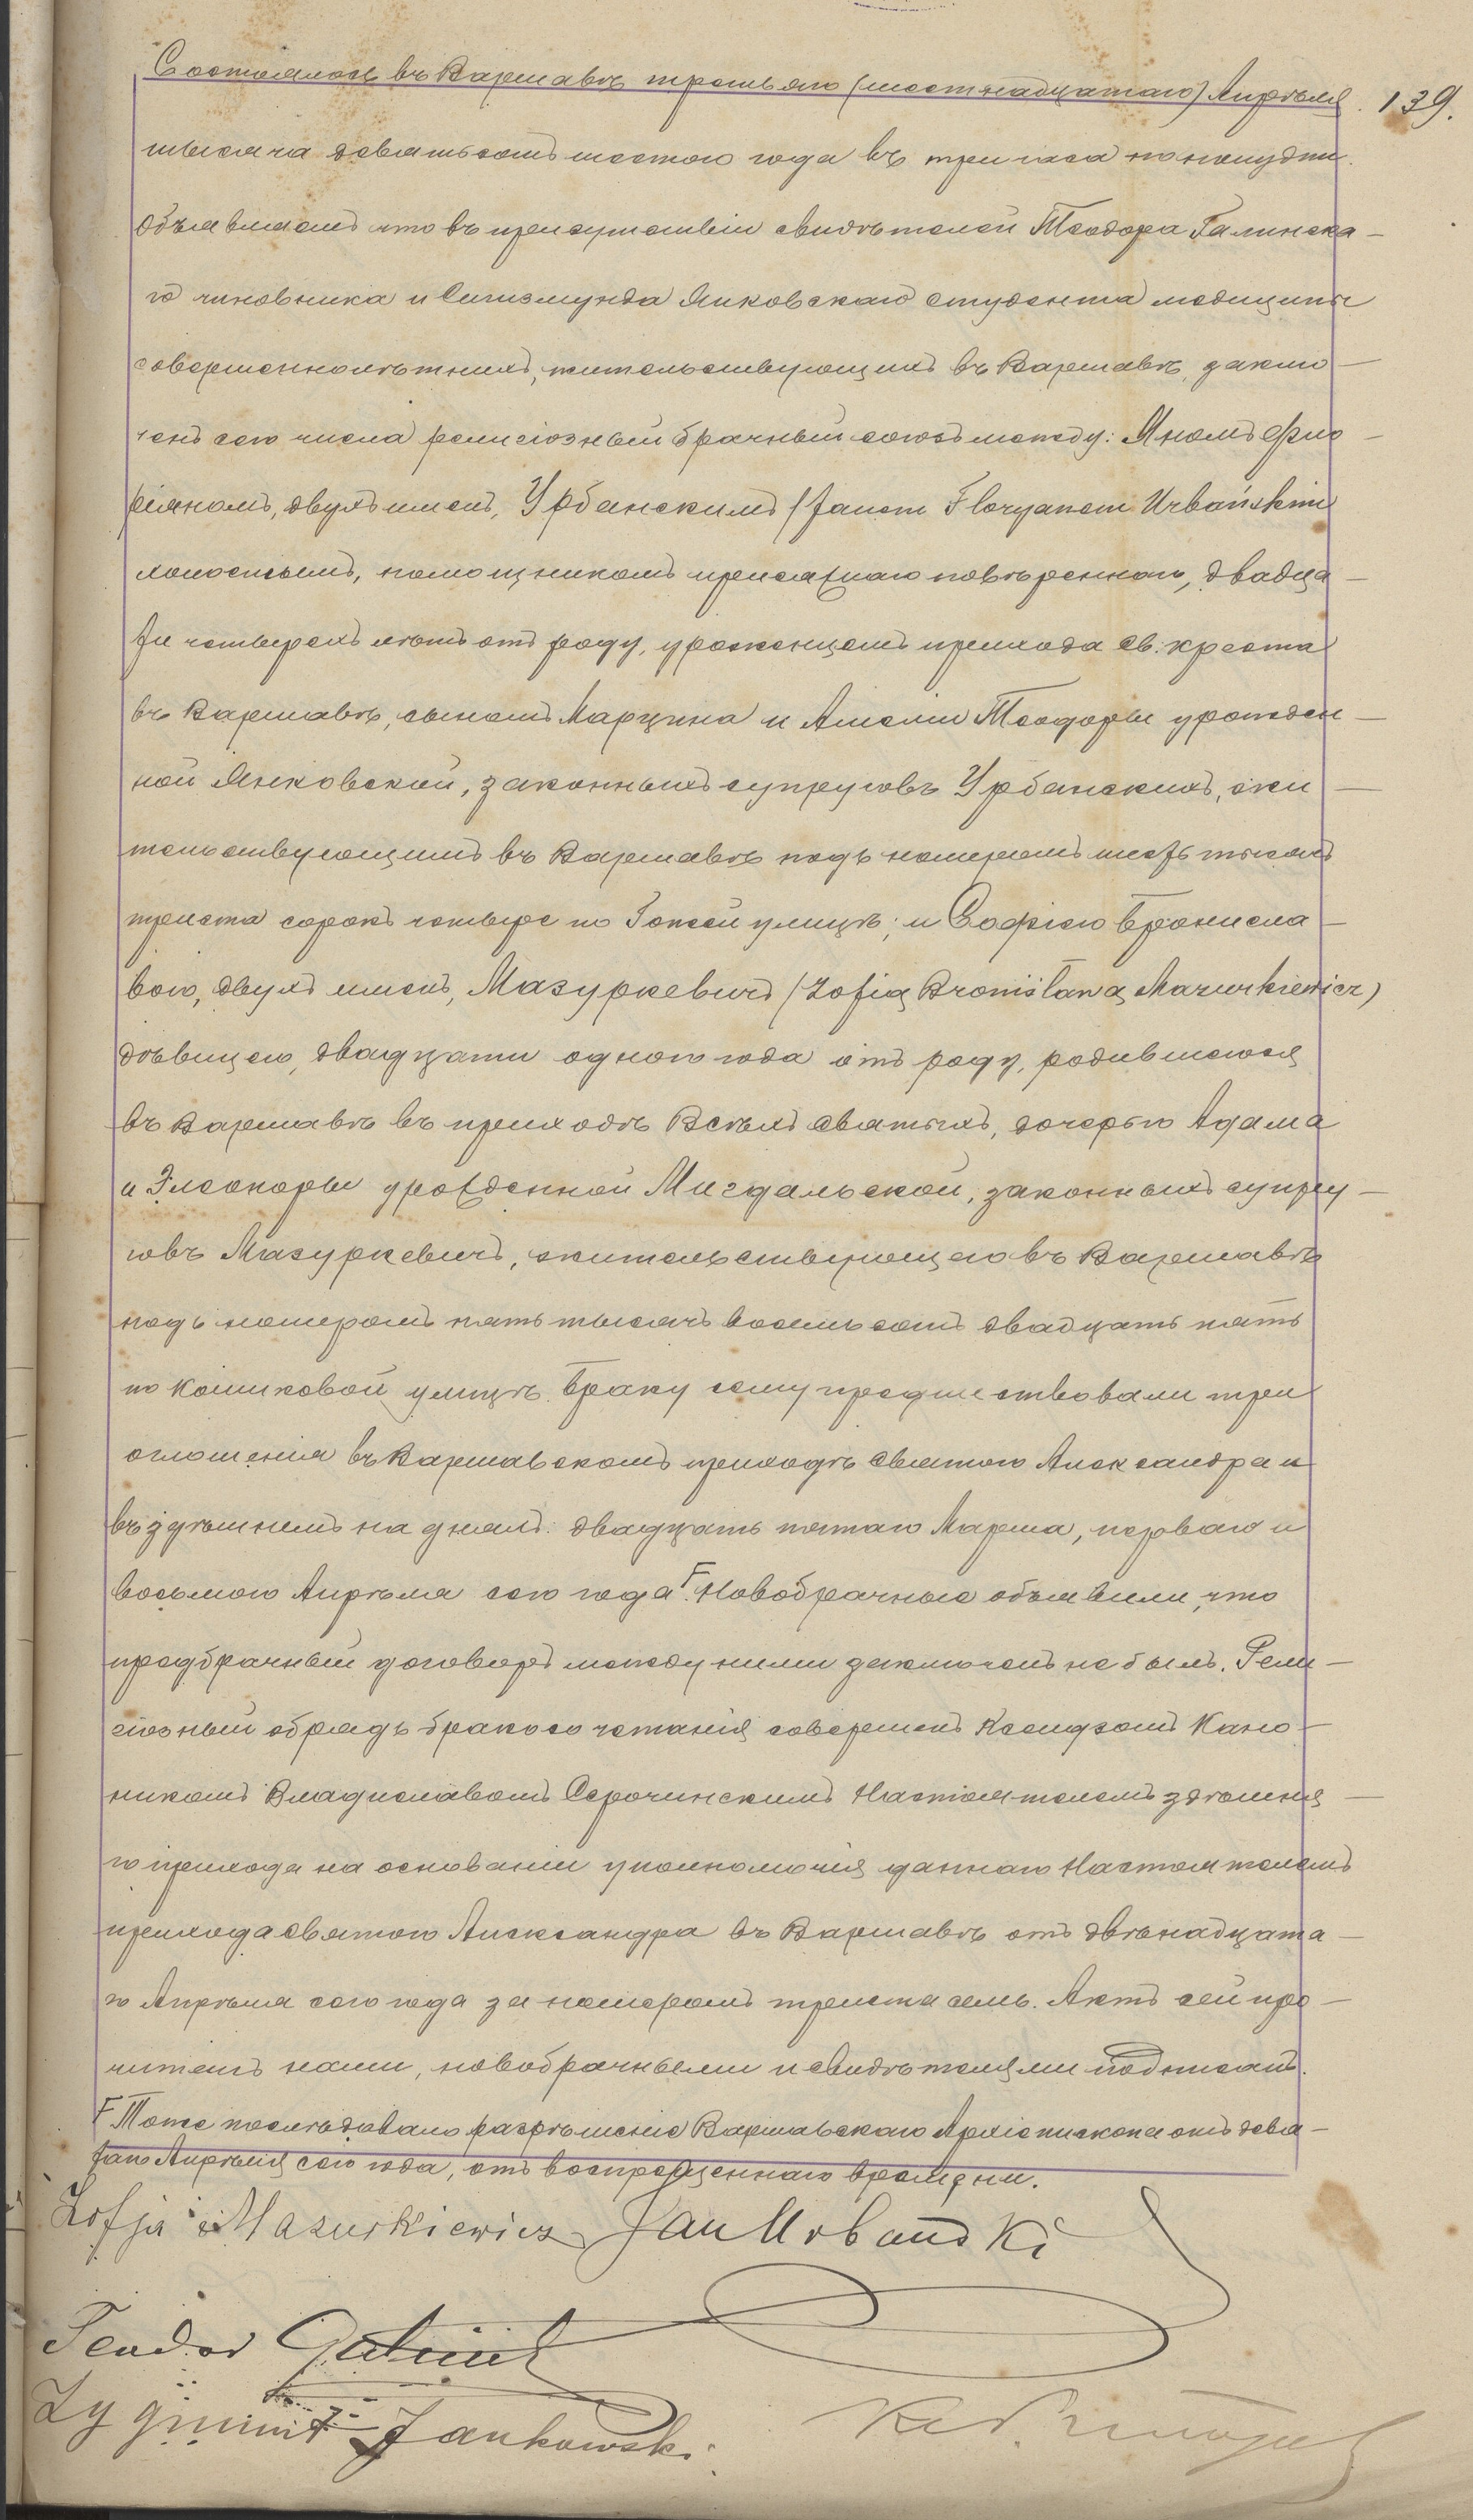 Состоялось въ Варшавѣ третьяго (шестнадцатаго) Апрѣля 139.
тысяча девятьсотъ шестого года въ три часа по полудни.
Объявляемъ что въ присутствіи свидѣтелей Теодора Галинска-
го чиновника и Сигизмунда Янковскаго студента медицины
совершеннолѣтнихъ, жительствующихъ въ Варшавѣ, заклю-
ченъ сего числа религіозный брачный союзъ между: Яномъ Фло-
ріяномъ, двухъ именъ, Урбанскимъ (Janem Floryanem Urbańskim
холостымъ, помощникомъ присяжнаго повѣреннаго, двадца-
ти четырехъ лѣтъ отъ роду, уроженцемъ прихода св. Креста
въ Варшавѣ, сыномъ Марцина и Амеліи Теодоры урожден-
ной Янковской, законныхъ супруговъ Урбанскихъ, жи-
тельствующимъ въ Варшавѣ подъ номеромъ шесть тысячъ
триста сорокъ четыре по Гожей улицѣ; и Софіею Бронисла-
вою, двухъ именъ, Мазуркевичъ (Zofią Bronisławą Mazurkiewicz)
дѣвицею, двадцати одного года отъ роду, родившеюся
въ Варшавѣ въ приходѣ Всѣхъ Святыхъ, дочерью Адама
и Элеоноры урожденной Мигдальской, законныхъ супру-
говъ Мазуркевичъ, жительствующею въ Варшавѣ
подъ номеромъ пять тысячъ восемьсотъ двадцать пять
по Кошиковой улицѣ. Браку сему предшествовали три
оглошенія въ Варшавскомъ приходѣ Святого Александра и
въ здѣшнемъ на дняхъ: двадцать пятаго Марта, перваго и
восьмого Апрѣля сего года. Г Новобрачные объявили, что
предбрачный договоръ между ними заключенъ не былъ. Рели-
гіозный обрядъ бракосочетанія совершенъ Ксендзомъ Кано-
никомъ Владиславомъ Серочинскимъ Настоятелемъ здѣшня-
го прихода на основаніи уполномочія даннаго Настоятелемъ
прихода Святого Александра въ Варшавѣ отъ двѣнадцата-
го Апрѣля сего года за номеромъ триста семь. Актъ сей про-
читанъ нами, новобрачными и свидѣтелями подписанъ.
Г Тоже послѣдовало разрѣшеніе Варшавскаго Архіепископа отъ девя-
таго Апрѣля сего года, отъ воспрещеннаго времени.
Zofja Mazurkiewicz Jan Urbański
Teodor
Zygmunt Jankowski